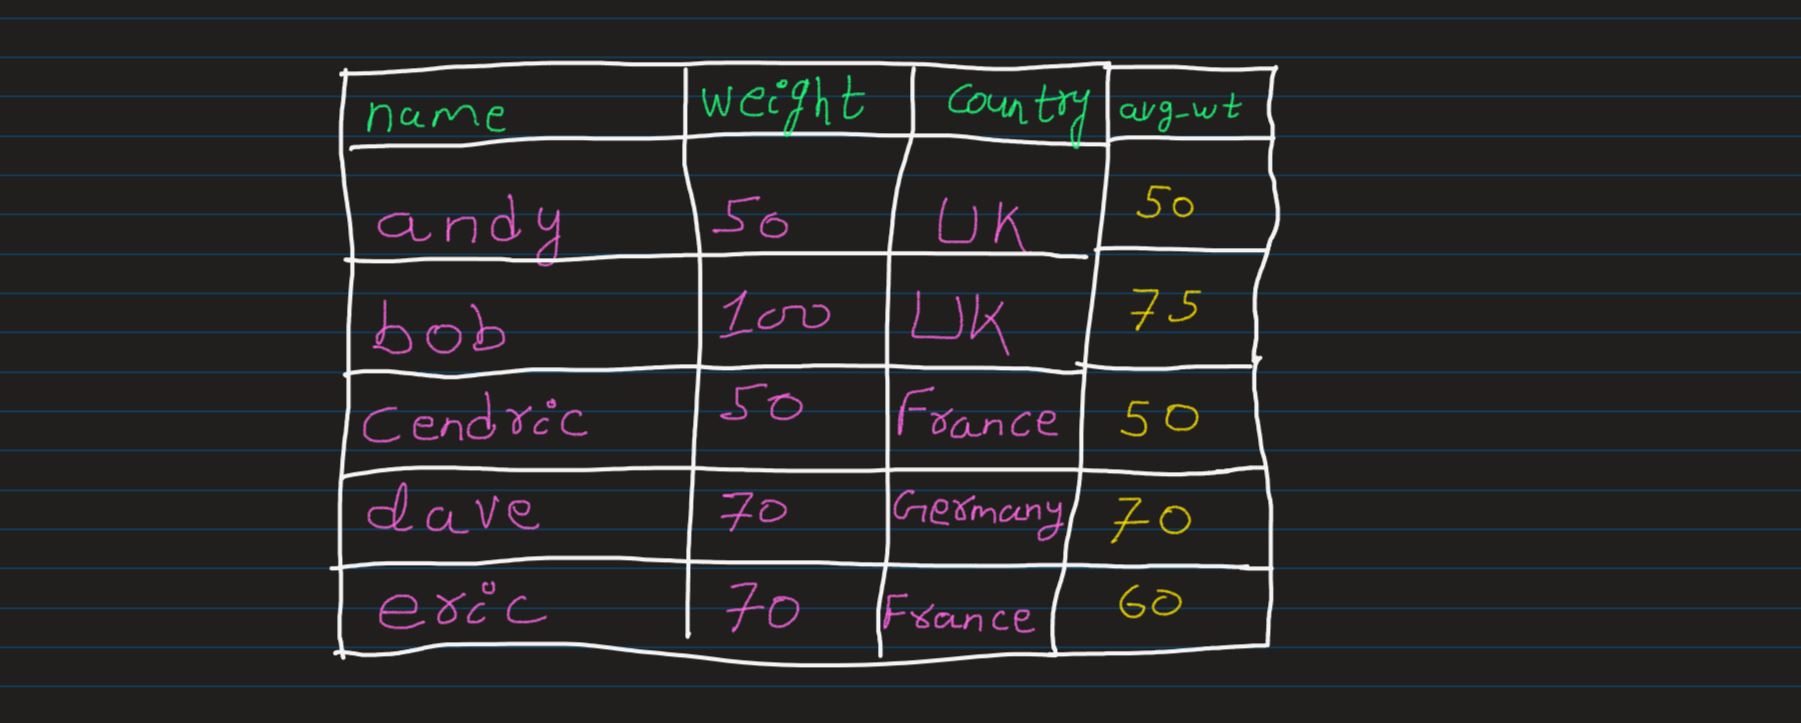 name weight Country avg-wt
andy 50 UK 50
bob 100 UK 75
Cendric 50 France 50
dave 70 Germany 70
eric 70 France 60